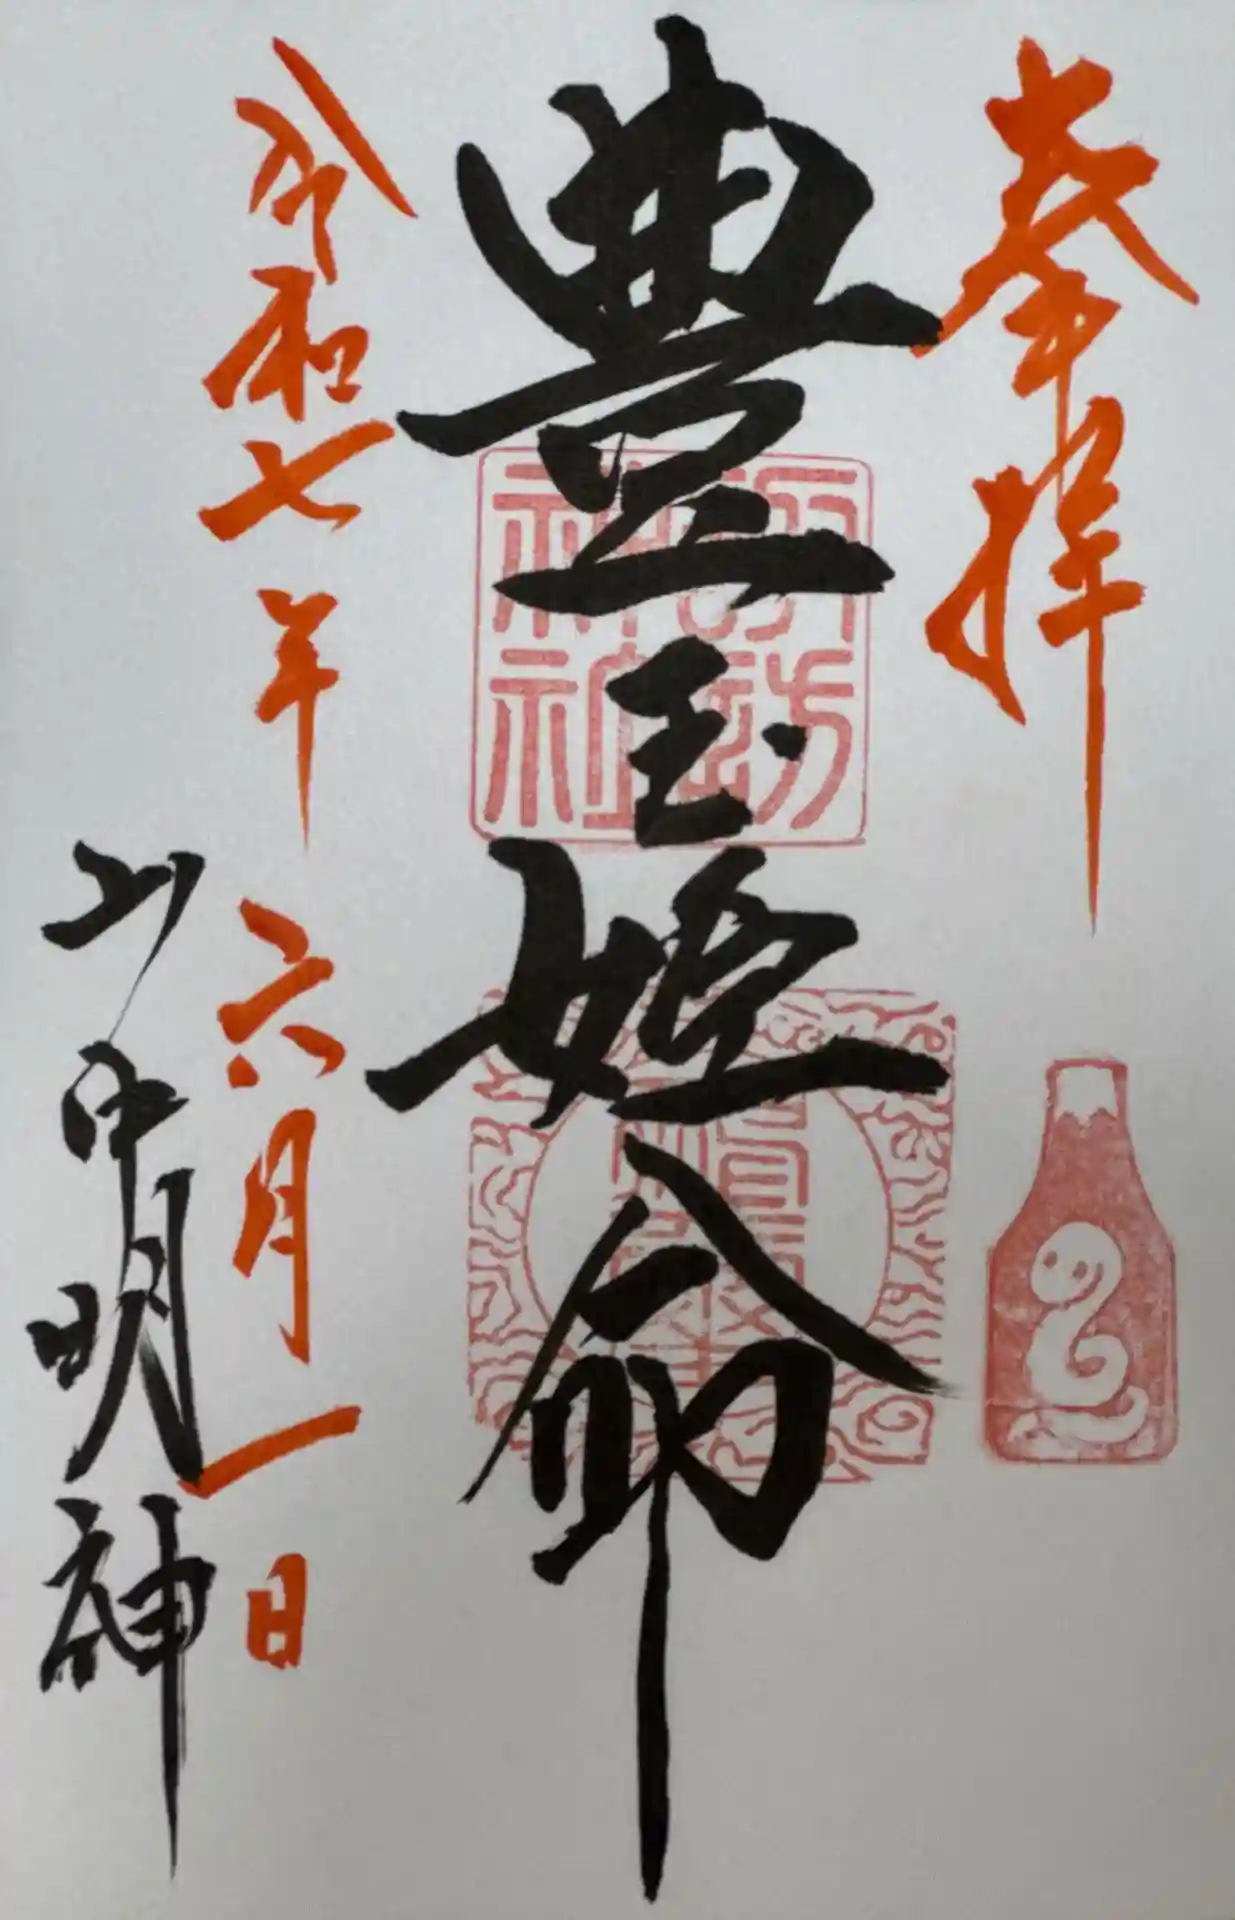 奉拝
豊玉姫命
令和七年 六月一日
山中明神